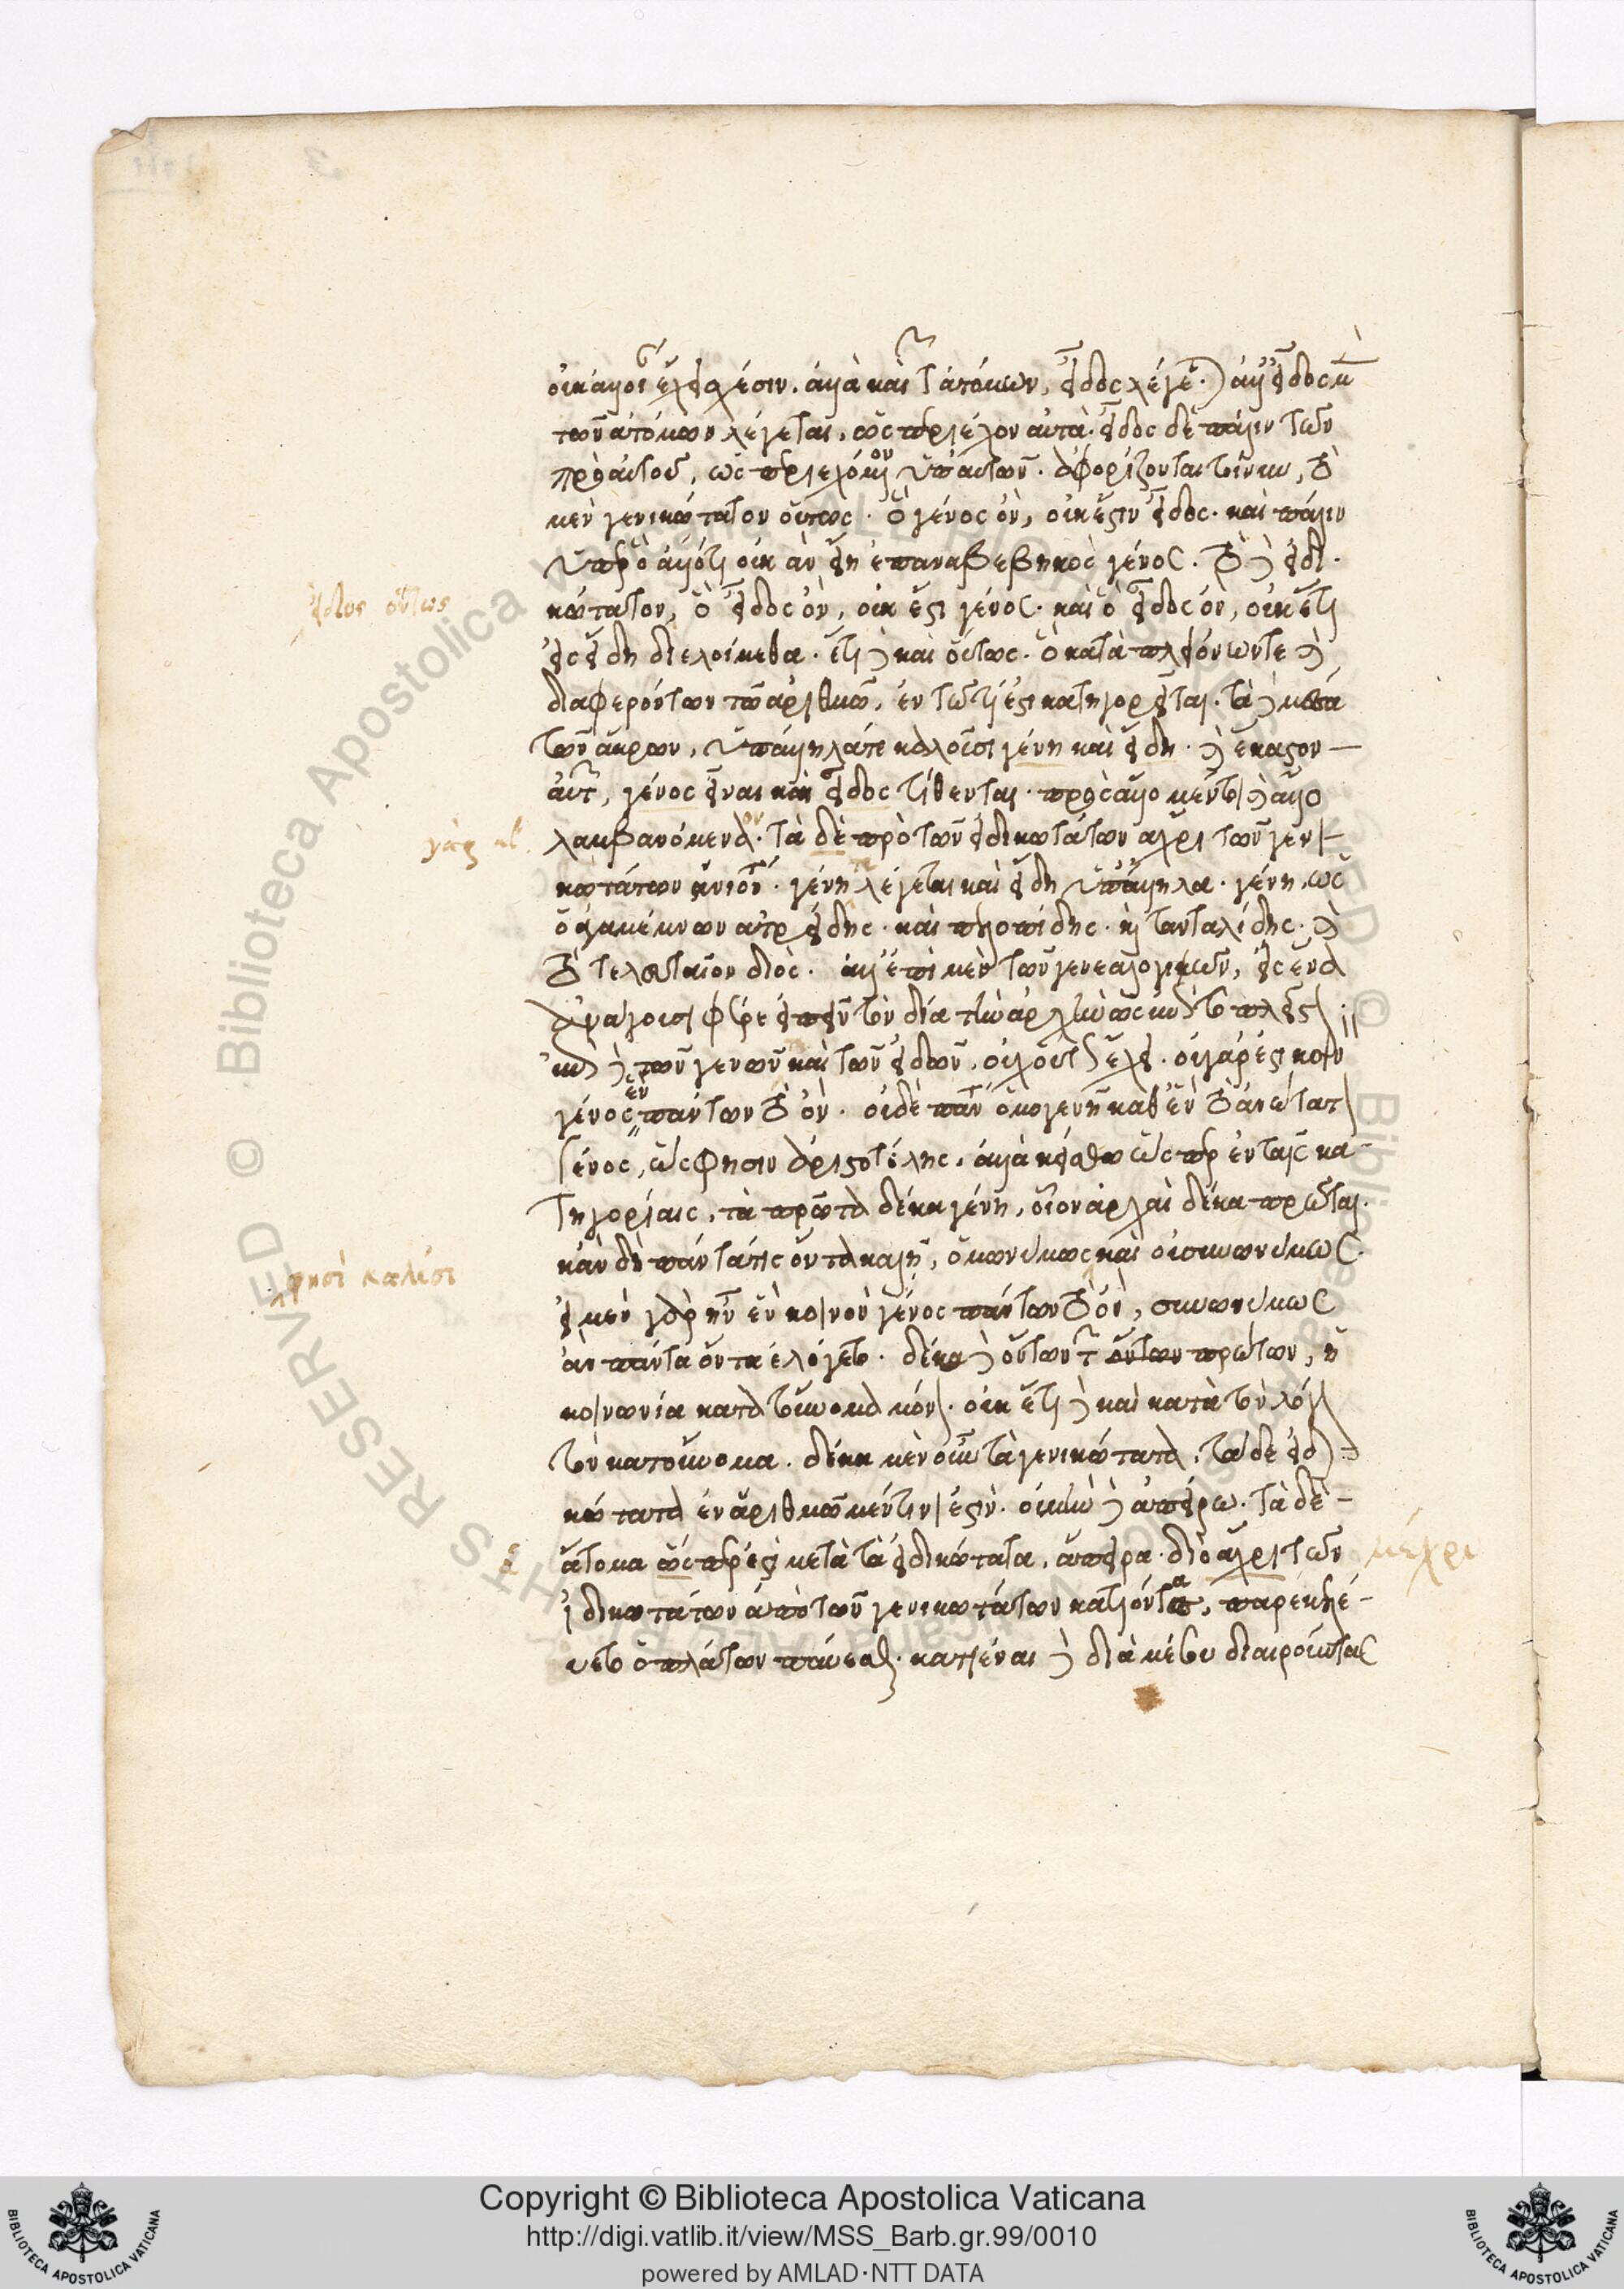 οὐκ ἀλλοίαν ἔχει σχέσιν. ἀλλὰ καὶ τῶν ἀτόμων, εἶδος λέγεται· ἀλλ' εἶδος μὲν
τῶν ἀτόμων λέγεται, ὡς περιέχον αὐτά. εἶδος δὲ πάλιν τῶν
πρὸ αὐτοῦ, ὡς περιεχόμενον ὑπ' αὐτῶν. ἀφορίζονται τοίνυν, τὸ
μὲν γενικώτατον οὕτως. ὃ γένος ὂν, οὐκ ἔστιν εἶδος. καὶ πάλιν
ὑπὲρ ὃ ἄλλο τι οὐκ ἂν εἴη ἐπαναβεβηκὸς γένος. τὸ δὲ εἰδι-
κώτατον, ὃ εἶδος ὂν, οὐκ ἔστι γένος. καὶ ὃ εἶδος ὂν, οὐκ ἔτι
εἰς εἴδη διελοίμεθα. ἔτι δὲ καὶ οὕτως. ὃ κατὰ πλειόνων τε καὶ
διαφερόντων τῷ ἀριθμῷ, ἐν τῷ τί ἐστι κατηγορεῖται. τὰ δὲ μέσα
τῶν ἄκρων, ὑπάλληλά τε καλοῦσι γένη καὶ εἴδη. καὶ ἕκαστον
αὐτῶν, γένος εἶναι καὶ εἶδος τίθενται. πρὸς ἄλλο μέντοι καὶ ἄλλο
λαμβανόμενον. τὰ δὲ πρὸ τῶν εἰδικωτάτων ἄχρι τῶν γενι-
κωτάτων ἀνιόντα. γένη λέγεται καὶ εἴδη ὑπάλληλα. γένη, ὡς
ὁ ἀγαμέμνων ἀτρείδης. καὶ πελοπίδης. καὶ τανταλίδης. καὶ
τὸ τελευταῖον διὸς. ἀλλ' ἐπὶ μὲν τῶν γενεαλογιῶν, εἰς ἕνα
ἀνάγουσι φέρε εἰπεῖν τὸν δία τὴν ἀρχὴν ὡς ἐπὶ τὸ πλεῖστον
ἐπὶ δὲ τῶν γενῶν καὶ τῶν εἰδῶν, οὐχ οὕτως ἔχει. οὐ γάρ ἐστι κοινὸν
γένος ἓν πάντων τὸ ὂν. οὐδὲ πάντα ὁμογενῆ καθ' ἓν τὸ ἀνώτατον
γένος, ὥς φησιν ἀριστοτέλης. ἀλλὰ κείσθω ὥσπερ ἐν ταῖς κα-
τηγορίαις, τὰ πρῶτα δέκα γένη, οἷον ἀρχαὶ δέκα πρῶται.
κἂν δὴ πάντα τις ὄντα καλῇ, ὁμωνύμως καὶ οὐ συνωνύμως.
εἰ μὲν γὰρ ἦν ἓν κοινὸν γένος πάντων τὸ ὂν, συνωνύμως
ἂν πάντα ὄντα ἐλέγετο. δέκα δὲ ὄντων τῶν ὄντων πρώτων, ἡ
κοινωνία κατὰ τοὔνομα μόνον. οὐκ ἔτι δὲ καὶ κατὰ τὸν λόγον
τὸν κατὰ τοὔνομα. δέκα μὲν οὖν τὰ γενικώτατα, τὰ δὲ εἰδι-
κώτατα ἐν ἀριθμῷ μέν τινί ἐστιν. οὐ μὴν δὲ ἀπείρῳ. τὰ δὲ
ἄτομα ὥσπερ ἐστὶ μετὰ τὰ εἰδικώτατα, ἄπειρα. διὸ ἄχρι τῶν
εἰδικωτάτων ἀπὸ τῶν γενικωτάτων κατιόντα, παρεκελέ-
υετο ὁ πλάτων παύεσθαι. κατιέναι δὲ διὰ μέσου διαιροῦντας
εἶδος οὕτως
γὰρ
φησὶ καλέσι
μέχρι
Copyright © Biblioteca Apostolica Vaticana
http://digi.vatlib.it/view/MSS_Barb.gr.99/0010
powered by AMLAD·NTT DATA
BIBLIOTECA APOSTOLICA VATICANA
BIBLIOTECA APOSTOLICA VATICANA